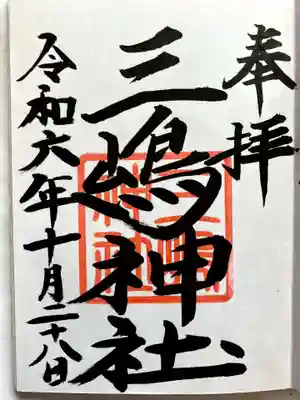 奉拝
三嶋神社
令和六年十月二十八日